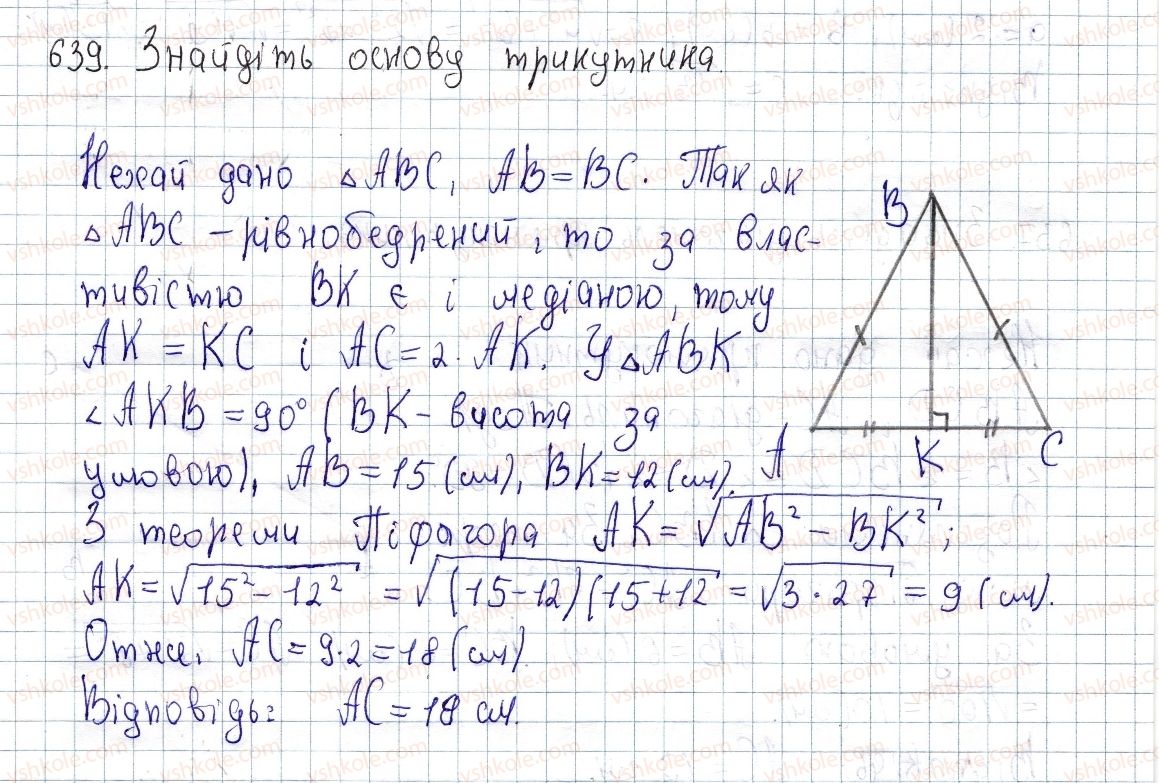 639. Знайдіть основу трикутника.
Нехай дано △ABC, AB=BC. Так як
△ABC – рівнобедрений, то за влас-
тивістю BK є і медіаною, тому
AK = KC і AC = 2 · AK. У △ABK
∠AKB = 90° (BK – висота за
умовою), AB = 15 (см), BK = 12 (см).
З теореми Піфагора AK = √AB² – BK²;
AK = √15² – 12² = √(15-12)(15+12 = √3 · 27 = 9 (см).
Отже, AC = 9·2 = 18 (см)
Відповідь: AC = 18 см.
B
A
K
C
vshkole.com